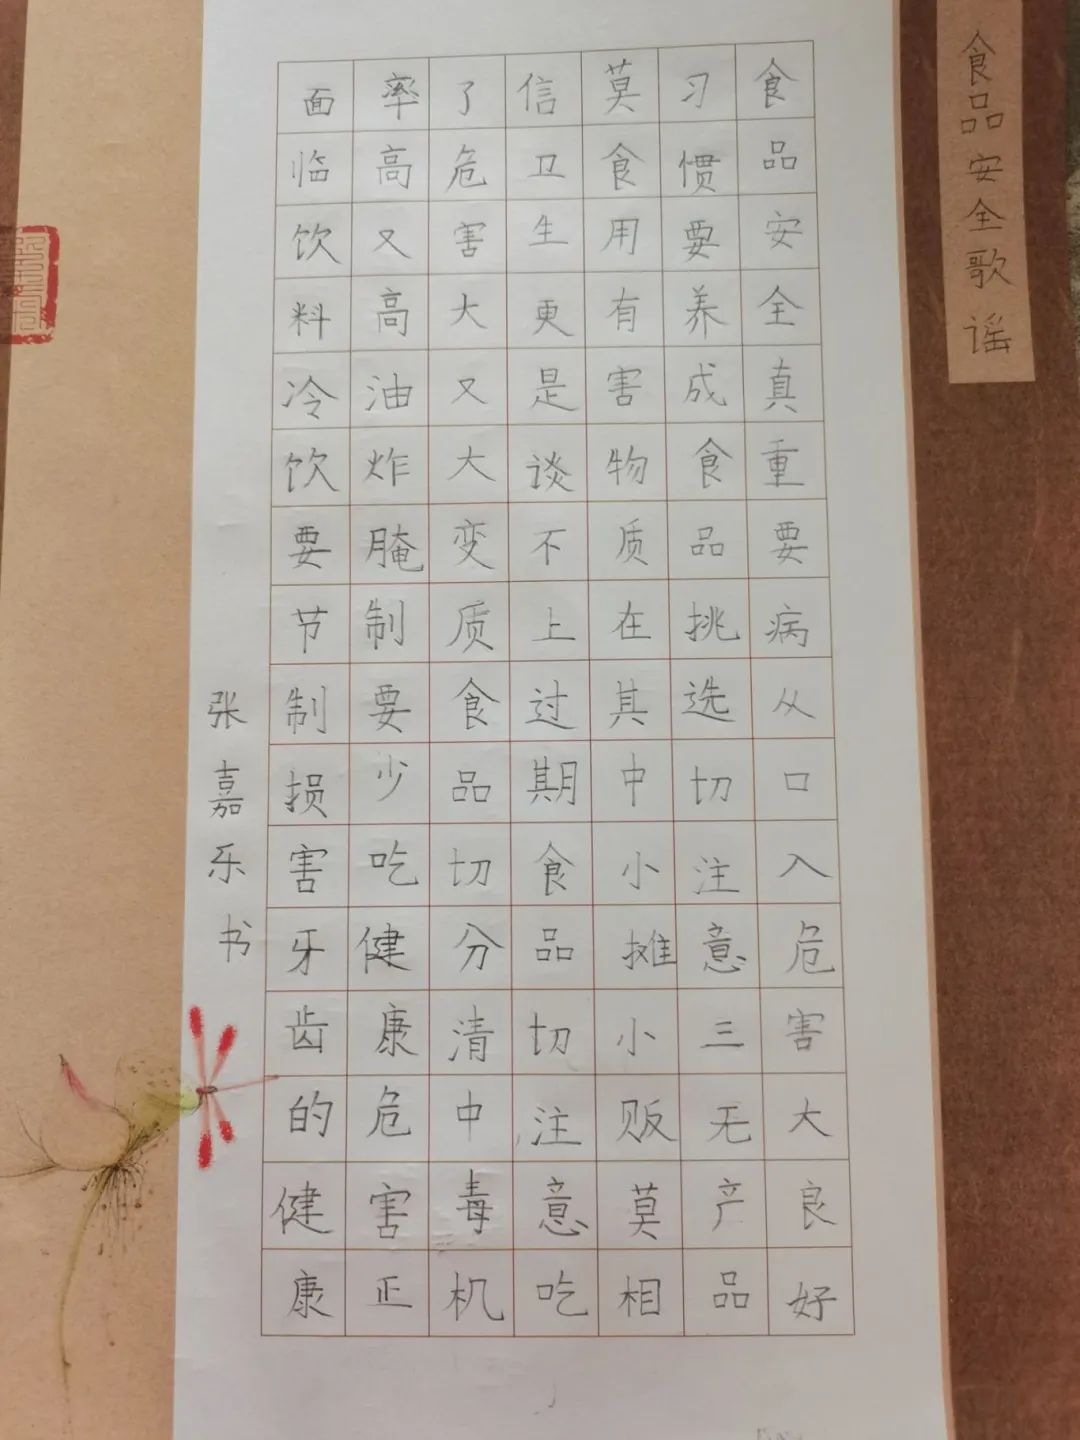 食品安全歌谣
食品安全真重要病从口入危害大良好
习惯要养成食品挑选切注意三无产品
莫食用有害物质在其中小摊小贩莫相
信卫生更是谈不上过期食品切注意吃
了危害大又大变质食品切分清中毒机
率高又高油炸腌制要少吃健康危害正
面临饮料冷饮要节制损害牙齿的健康
张嘉乐书